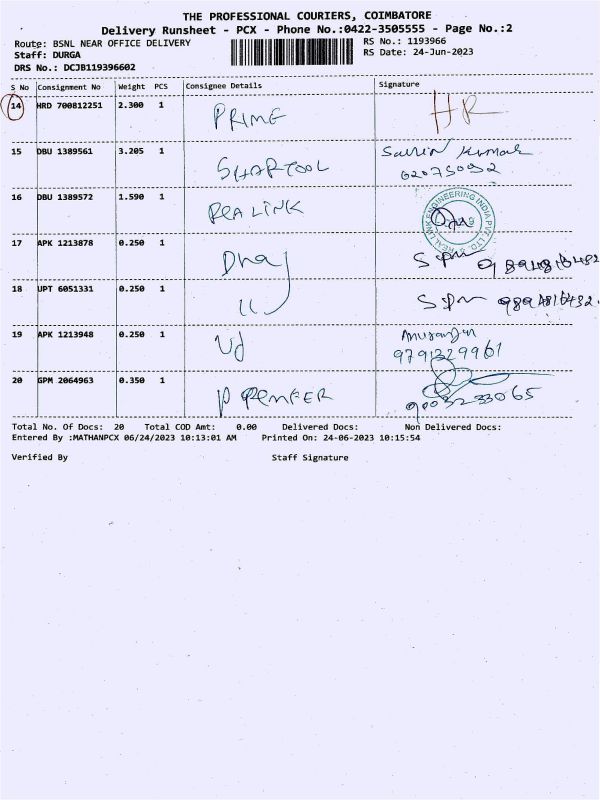 THE PROFESSIONAL COURIERS, COIMBATORE
Delivery Runsheet - PCX - Phone No.:0422-3505555 - Page No.:2
Route: BSNL NEAR OFFICE DELIVERY RS No.: 1193966
Staff: DURGA RS Date: 24-Jun-2023
DRS No.: DCJB119396602
S No Consignment No Weight PCS Consignee Details Signature
14 HRD 700812251 2.300 1 PRIME HR
15 DBU 1389561 3.205 1 SHARTOOL Kumar
16 DBU 1389572 1.590 1 REALINK REAL LINK ENGINEERING INDIA PVT. LTD.
17 APK 1213878 0.250 1 Dhaj
18 UPT 6051331 0.250 1 11
19 APK 1213948 0.250 1 Vd 9791329961
20 GPM 2064963 0.350 1 9003233065
Total No. Of Docs: 20 Total COD Amt: 0.00 Delivered Docs: Non Delivered Docs:
Entered By :MATHANPCX 06/24/2023 10:13:01 AM Printed On: 24-06-2023 10:15:54
Verified By Staff Signature